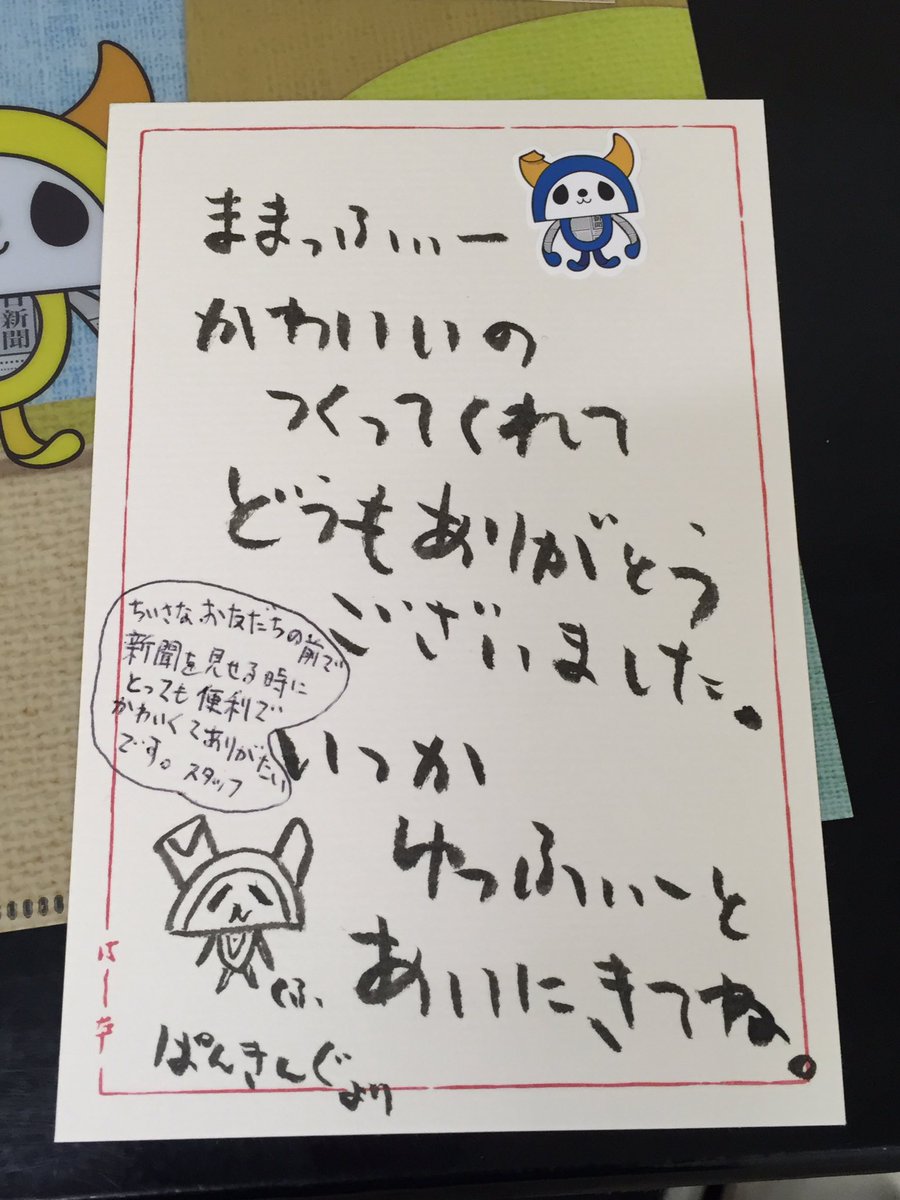 ままっふぃー
かわいいの
つくってくれて
どうもありがとう
ございました。
いっか
ゆっふぃーと
あいにきてね。
ちいさなお友だちの前で
新聞を見せる時に
とっても便利で
かわいくてありがたい
です。スタッフ
くふ
ぱんきんぐ
より
はーな
新聞